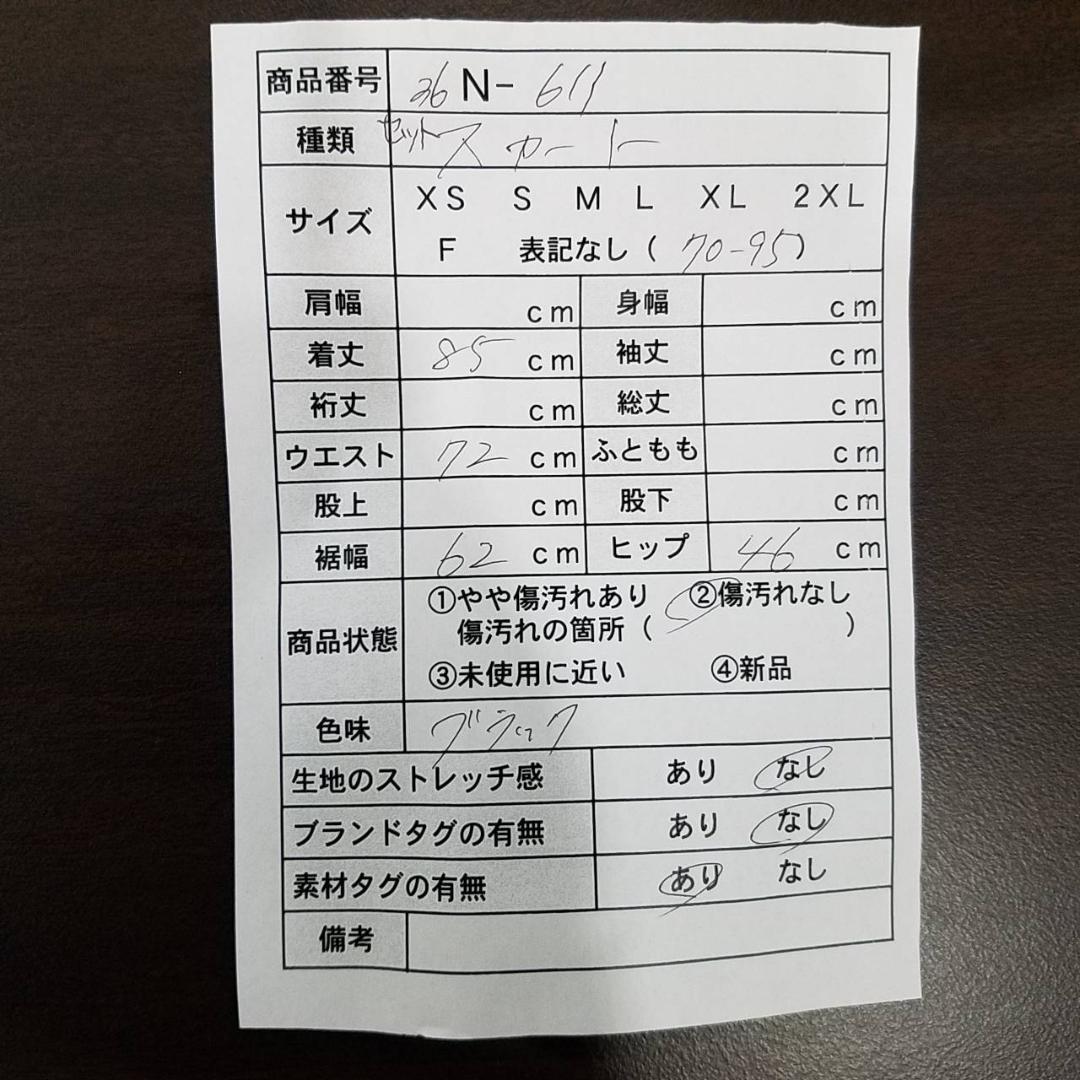 商品番号 26 N- 611
種類 セットスカート
サイズ XS S M L XL 2XL
F 表記なし ( 70-95 )
肩幅 cm 身幅 cm
着丈 85 cm 袖丈 cm
裄丈 cm 総丈 cm
ウエスト 72 cm ふともも cm
股上 cm 股下 cm
裾幅 62 cm ヒップ 46 cm
商品状態 ①やや傷汚れあり ②傷汚れなし
傷汚れの箇所 ( )
③未使用に近い ④新品
色味 ブラック
生地のストレッチ感 あり なし
ブランドタグの有無 あり なし
素材タグの有無 あり なし
備考